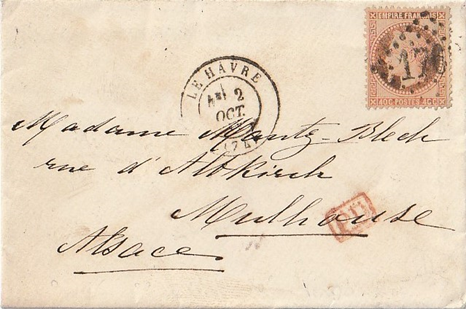 EMPIRE FRANÇAIS
40 C. POSTES 40 C.
LE HAVRE
2
OCT.
Madame Mantz-Blech
rue d'Altkirch
Mulhouse
Alsace